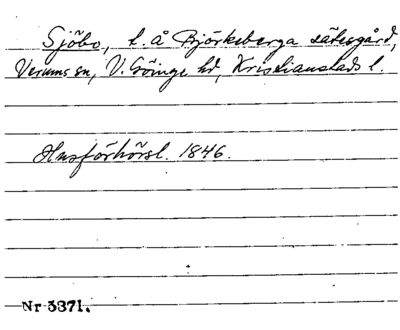 Sjöbo, t. å Björkeberga sätesgård,
Verums sn, V. Göinge hd, Kristianstads l.
Husförhörsl. 1846.
Nr 3371.